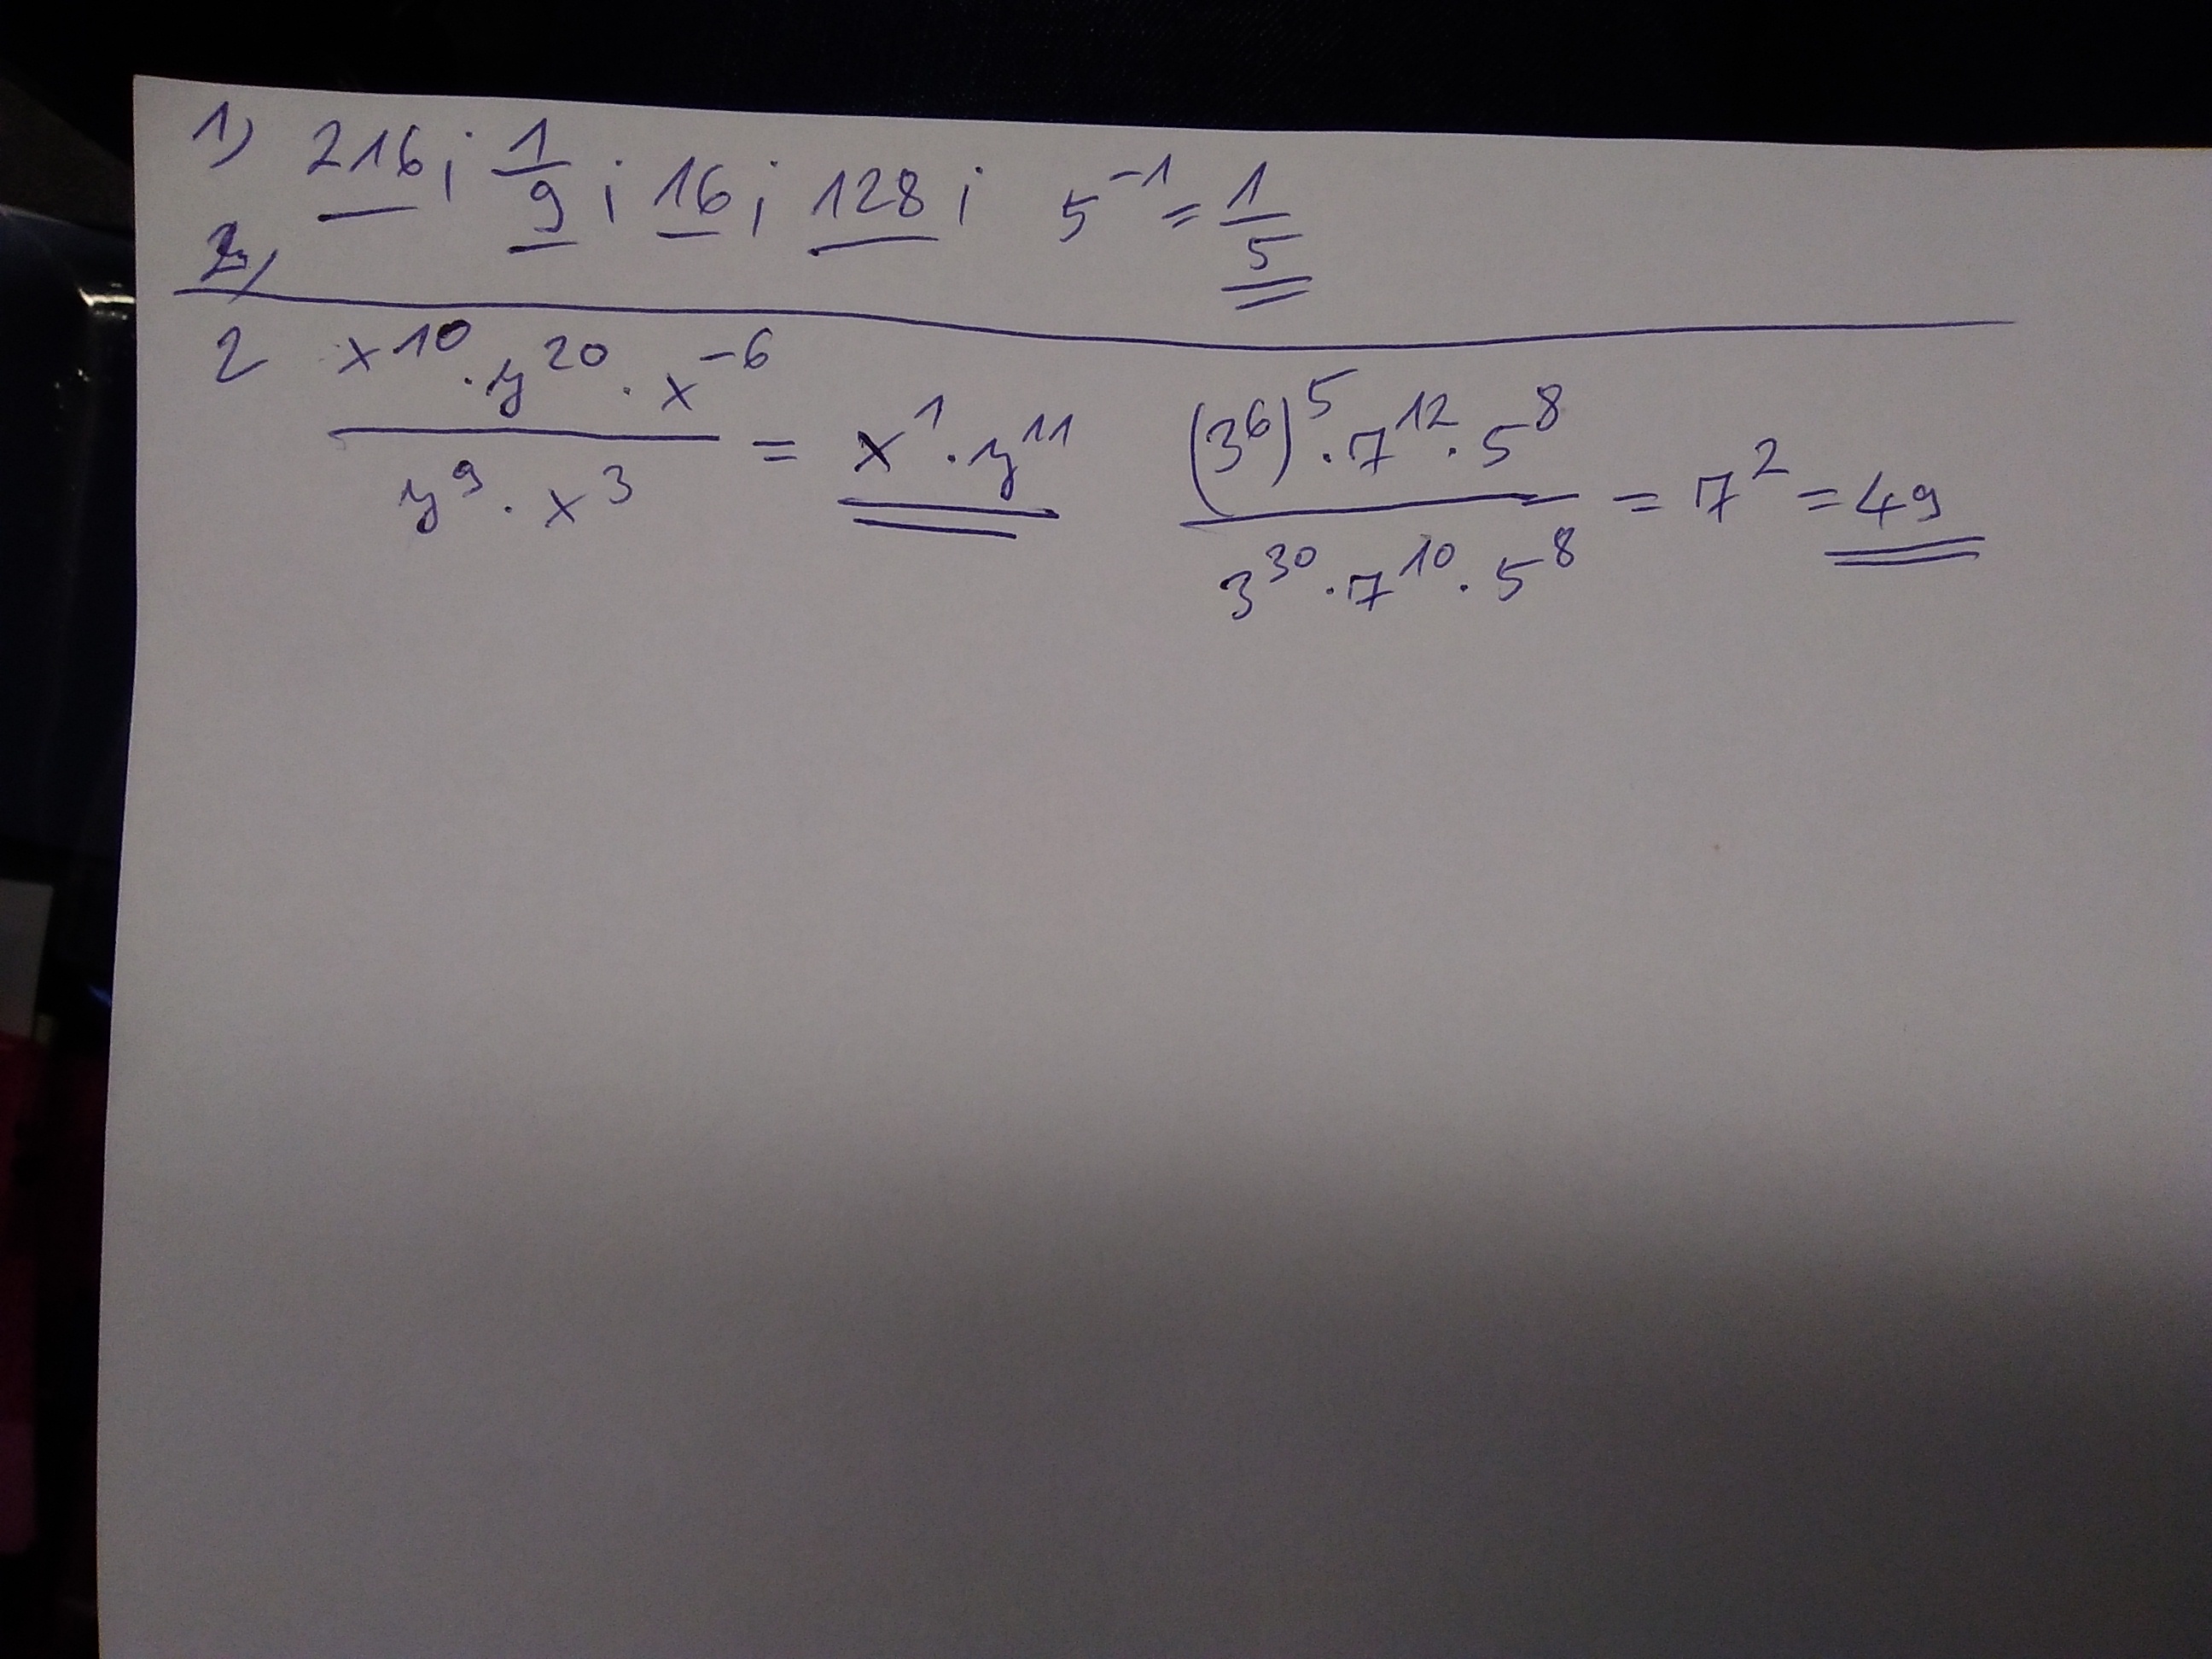 1) 216; 1/9; 16; 128; 5^-1 = 1/5
2)
2 (x^10 · y^20 · x^-6)/(y^9 · x^3) = x^1 · y^11 ((3^6)^5 · 7^12 · 5^8)/(3^30 · 7^10 · 5^8) = 7^2 = 49